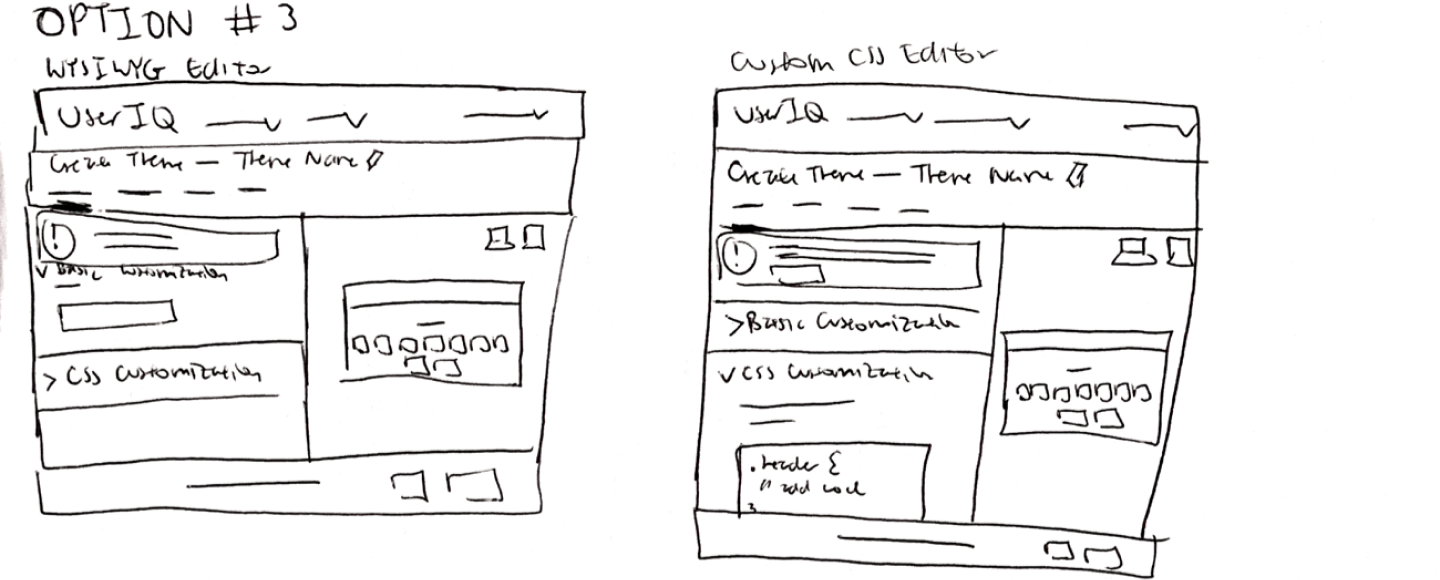 OPTION # 3
WYSIWYG Editor
UserIQ
Create Theme — Theme Name
!
Basic Customization
> CSS Customization
Custom CSS Editor
UserIQ
Create Theme — Theme Name
!
> Basic Customization
CSS Customization
.header {
// add code
}